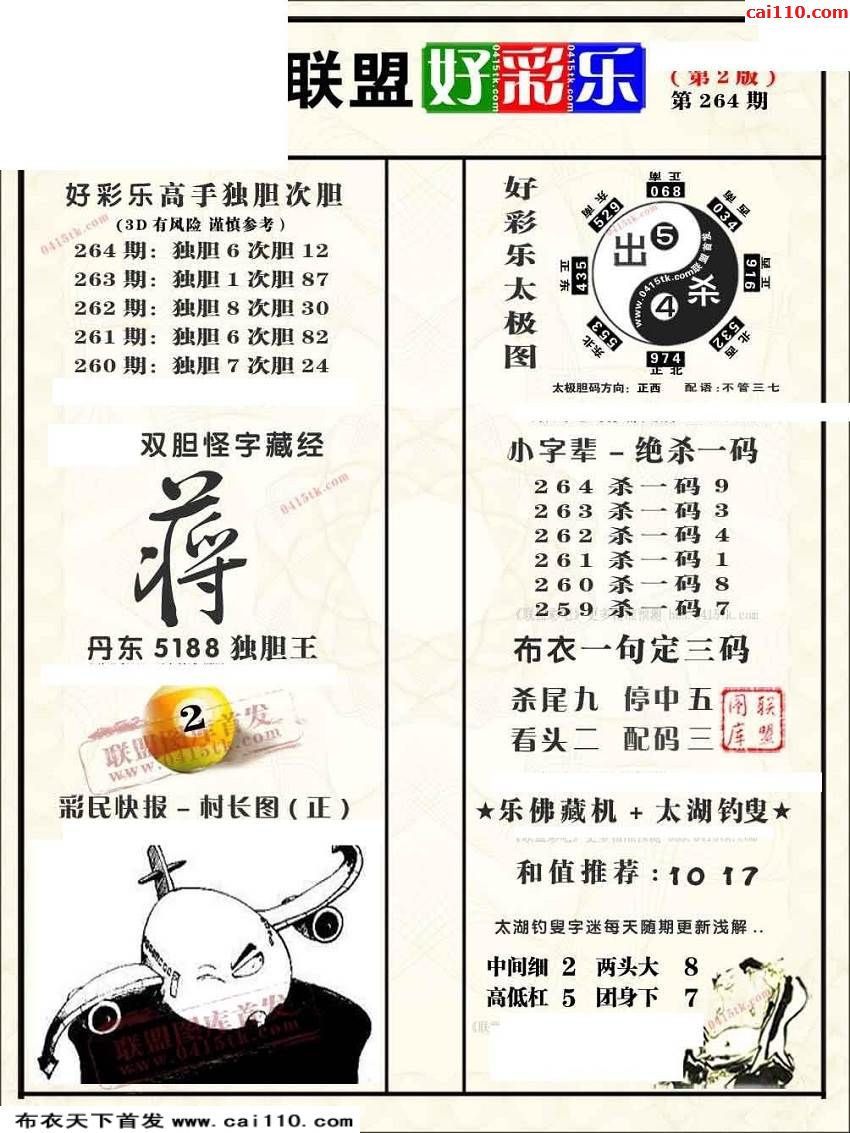 cai110.com
联盟 好彩乐
(第2版)
第264期
好彩乐高手独胆次胆
(3D有风险 谨慎参考)
264期: 独胆6次胆12
263期: 独胆1次胆87
262期: 独胆8次胆30
261期: 独胆6次胆82
260期: 独胆7次胆24
0415tk.com
双胆怪字藏经
蒋
0415tk.com
丹东5188独胆王
2
联盟图库首发
www.0415tk.com
彩民快报-村长图(正)
联盟图库首发
www.0415tk.com
好彩乐太极图
正南 068
西南 034
正西 916
西北 532
正北 974
东北 553
正东 435
东南 529
出 5
杀 4
www.0415tk.com联盟首发
太极胆码方向: 正西 配语:不管三七
小字辈-绝杀一码
264 杀一码 9
263 杀一码 3
262 杀一码 4
261 杀一码 1
260 杀一码 8
259 杀一码 7
布衣一句定三码
杀尾九 停中五
看头二 配码三
联盟图库
★乐佛藏机+太湖钓叟★
和值推荐:10 17
太湖钓叟字迷每天随期更新浅解..
中间细 2 两头大 8
高低杠 5 团身下 7
0415tk.com
布衣天下首发 www.cai110.com